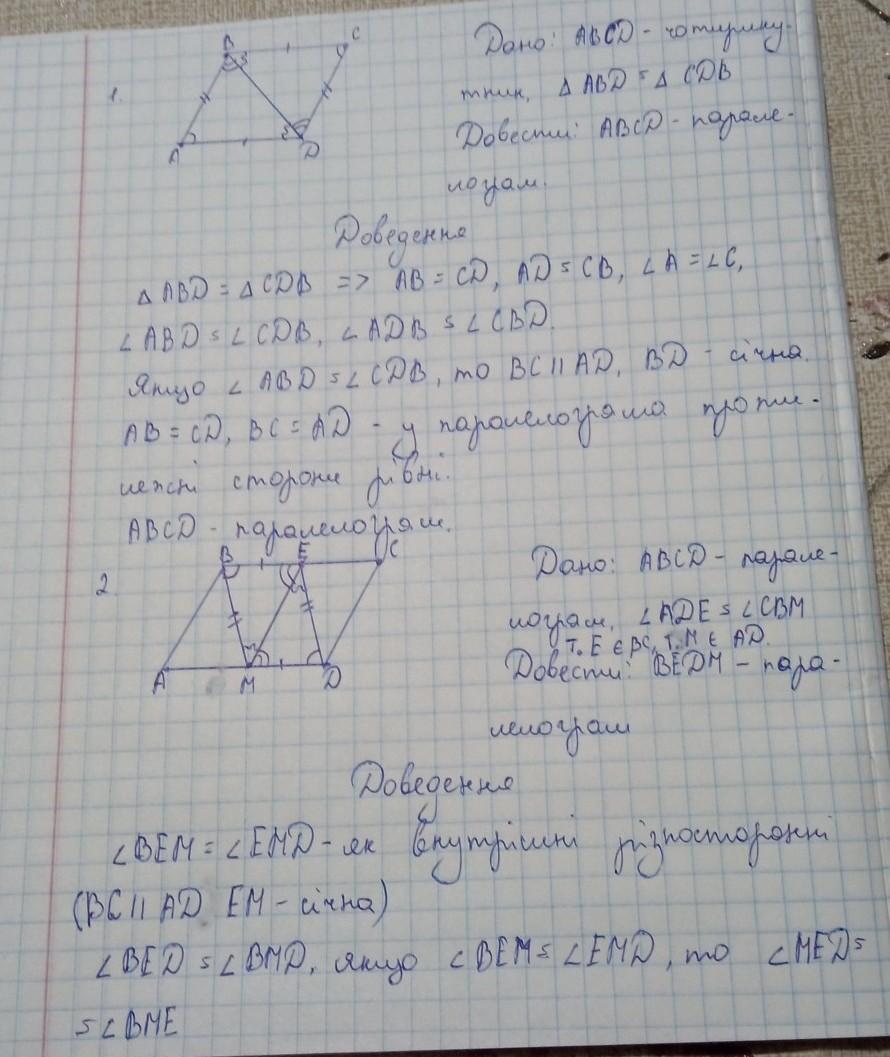 1.
B
C
A
D
Дано: ABCD - чотирику-
тник, △ ABD = △ CDB
Довести: ABCD - парале-
лограм.
Доведення
△ ABD = △ CDB => AB = CD, AD = CB, ∠A = ∠C,
∠ABD = ∠CDB, ∠ADB = ∠CBD.
Якщо ∠ABD = ∠CDB, то BC || AD, BD - січна.
AB = CD, BC = AD - у паралелограма проти-
лежні сторони рівні.
ABCD - паралелограм.
2
B E C
A M D
Дано: ABCD - парале-
лограм, ∠ADE = ∠CBM
т. E ∈ BC, т. M ∈ AD.
Довести: BEDM - пара-
лелограм
Доведення
∠BEM = ∠EMD - як внутрішні різносторонні
(BC || AD EM - січна)
∠BED = ∠BMD, якщо ∠BEM = ∠EMD, то ∠MED =
= ∠BME